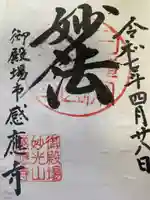 令和七年四月廿八日
妙法
御殿場市感應寺
御殿場
妙光山
感應寺